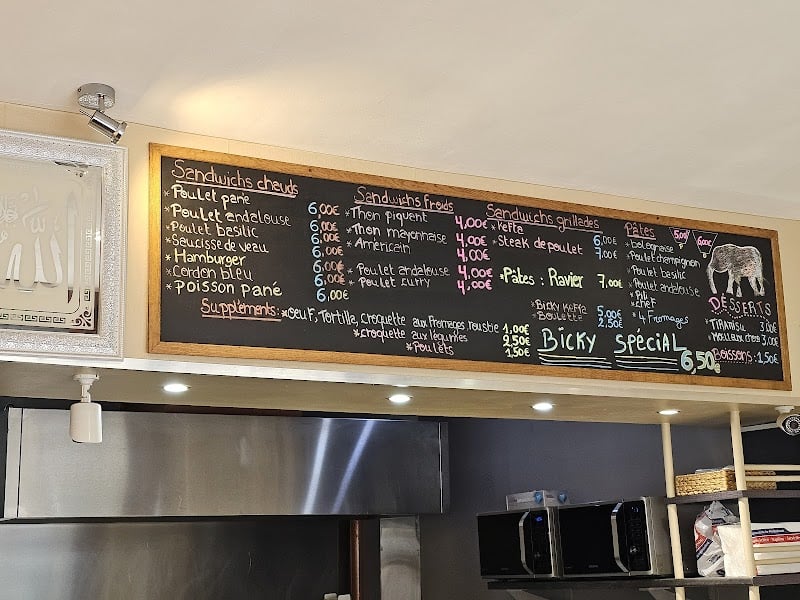 Sandwichs chauds
*Poulet pané 6,00€
*Poulet andalouse 6,00€
*Poulet basilic 6,00€
*Saucisse de veau 6,00€
*Hamburger 6,00€
*Cordon bleu 6,00€
*Poisson pané 6,00€
Sandwichs froids
*Thon piquent 4,00€
*Thon mayonnaise 4,00€
*Américain 4,00€
*Poulet andalouse 4,00€
*Poulet curry 4,00€
Sandwichs grillades
*Kefta 6,00€
*Steak de poulet 7,00€
*Pâtes : Ravier 7,00€
*Bicky Kefta 5,00€
*Boulette 2,50€
Pâtes 5,00 6,00€
*bolognaise
*Poulet champignon
*Poulet basilic
*Poulet andalouse
*Pili
*chef
*4 Fromages
Suppléments: *oeuf, Tortilla, croquette aux fromages 1,00€
*croquette aux légumes 2,50€
*Poulets 1,50€
Bicky Spécial 6,50€
Desserts
*Tiramisu 3,00€
3,00€
Boissons: 1,50€
الله